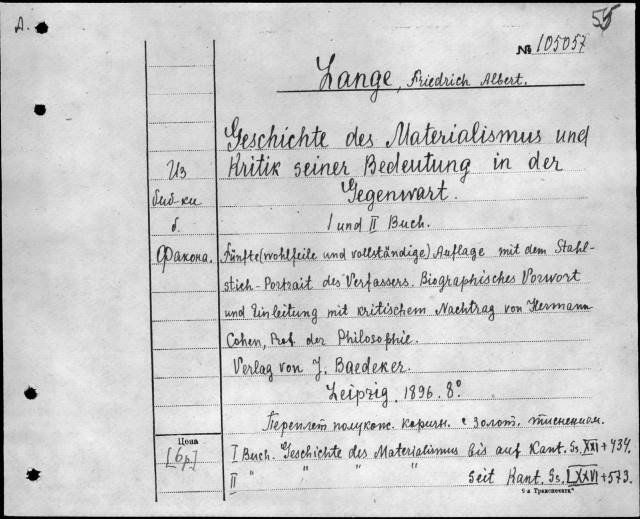 А.
55
№ 105057
Lange, Friedrich Albert.
Geschichte des Materialismus und
Kritik seiner Bedeutung in der
Gegenwart.
I und II Buch.
Из
биб-ки
б.
Факона.
Fünfte (wohlfeile und vollständige) Auflage mit dem Stahl-
stich-Portrait des Verfassers. Biographisches Vorwort
und Einleitung mit kritischem Nachtrag von Hermann
Cohen, Prof. der Philosophie.
Verlag von J. Baedeker.
Leipzig. 1896. 8°.
Переплет полукож. коричн. с золот. тиснением.
Цена
[6р]
I Buch. Geschichte des Materialismus bis auf Kant. Ss. XXI + 434.
II " " " " seit Kant. Ss. LXXVI + 573.
"